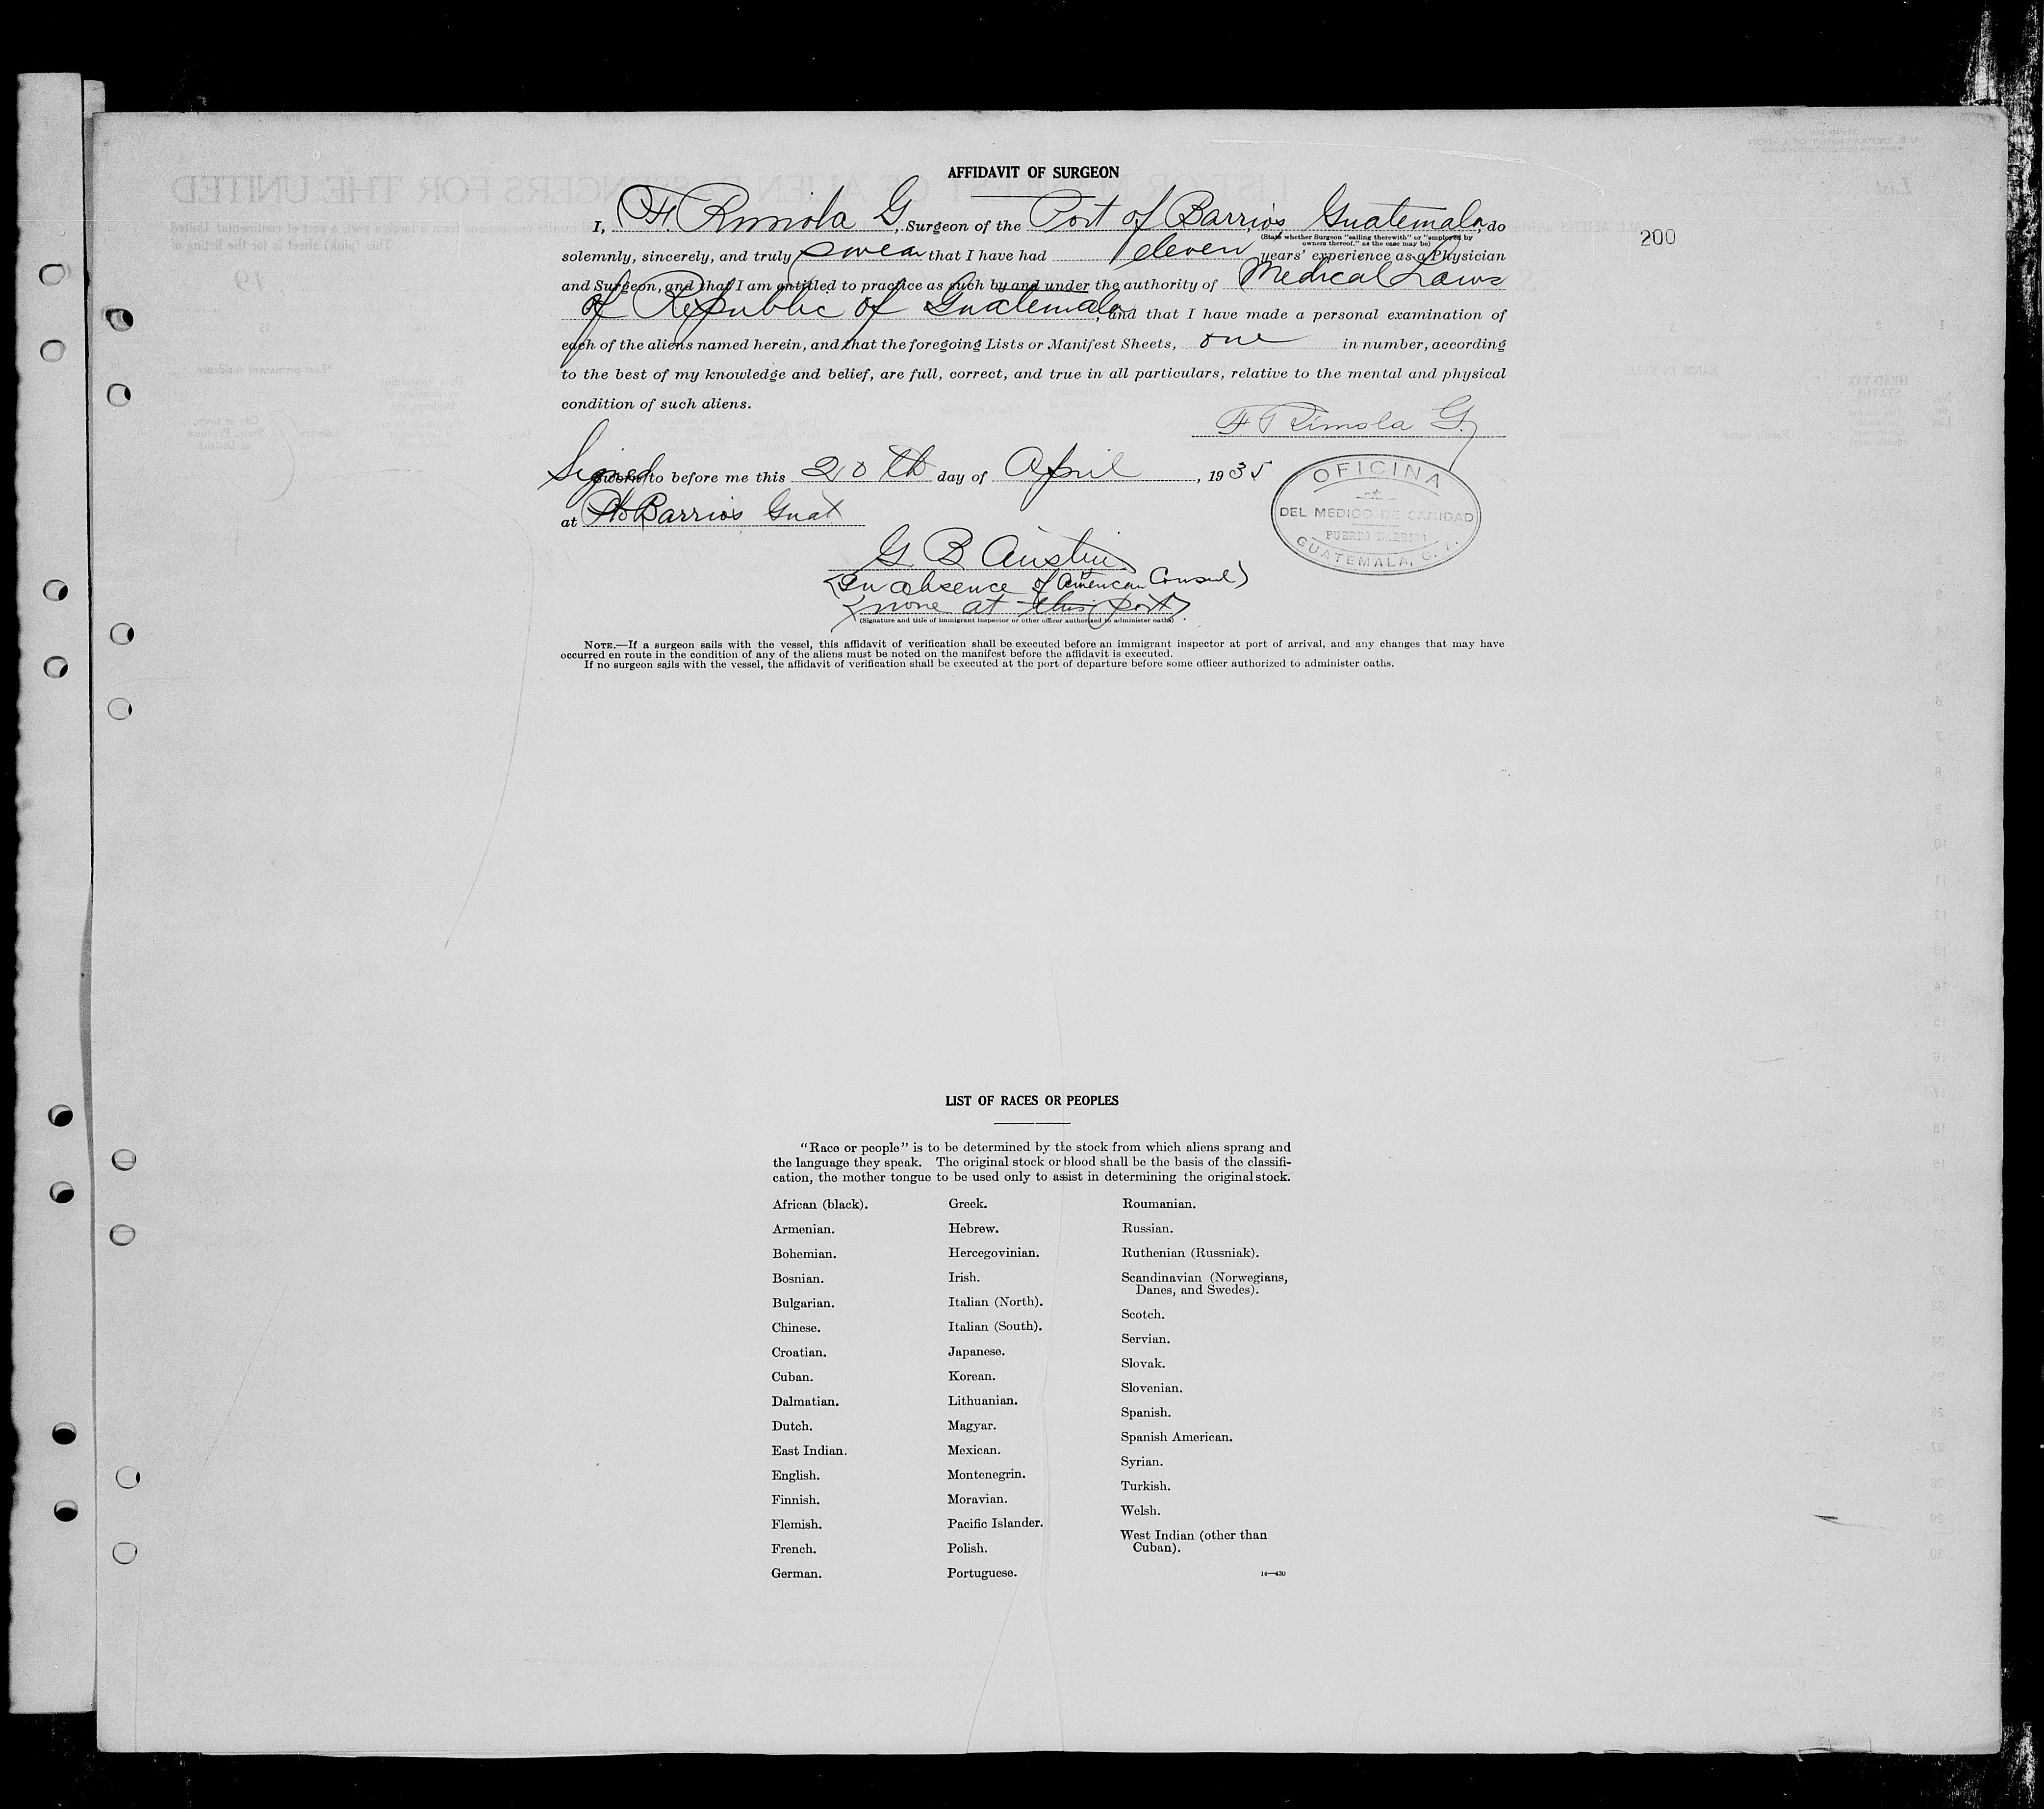 AFFIDAVIT OF SURGEON
I, F. Rimola G. Surgeon of the Port of Barrios, Guatemala, do
(State whether Surgeon "sailing therewith" or "employed by
owners thereof," as the case may be)
200
solemnly, sincerely, and truly swear that I have had eleven years' experience as a Physician
and Surgeon, and that I am entitled to practice as such by and under the authority of Medical Laws
of Republic of Guatemala, and that I have made a personal examination of
each of the aliens named herein, and that the foregoing Lists or Manifest Sheets, one in number, according
to the best of my knowledge and belief, are full, correct, and true in all particulars, relative to the mental and physical
condition of such aliens.
F Rimola G.
Signed to before me this 20th day of April, 1935
at Pto Barrios Guat
OFICINA
DEL MEDICO DE SANIDAD
PUERTO BARRIOS
GUATEMALA, C. A.
G B Austin
(In absence of American Consul)
(none at this port).
(Signature and title of immigrant inspector or other officer authorized to administer oaths)
NOTE.—If a surgeon sails with the vessel, this affidavit of verification shall be executed before an immigrant inspector at port of arrival, and any changes that may have
occurred en route in the condition of any of the aliens must be noted on the manifest before the affidavit is executed.
If no surgeon sails with the vessel, the affidavit of verification shall be executed at the port of departure before some officer authorized to administer oaths.
LIST OF RACES OR PEOPLES
"Race or people" is to be determined by the stock from which aliens sprang and
the language they speak. The original stock or blood shall be the basis of the classifi-
cation, the mother tongue to be used only to assist in determining the original stock.
African (black).
Armenian.
Bohemian.
Bosnian.
Bulgarian.
Chinese.
Croatian.
Cuban.
Dalmatian.
Dutch.
East Indian.
English.
Finnish.
Flemish.
French.
German.
Greek.
Hebrew.
Hercegovinian.
Irish.
Italian (North).
Italian (South).
Japanese.
Korean.
Lithuanian.
Magyar.
Mexican.
Montenegrin.
Moravian.
Pacific Islander.
Polish.
Portuguese.
Roumanian.
Russian.
Ruthenian (Russniak).
Scandinavian (Norwegians,
Danes, and Swedes).
Scotch.
Servian.
Slovak.
Slovenian.
Spanish.
Spanish American.
Syrian.
Turkish.
Welsh.
West Indian (other than
Cuban).
14—430